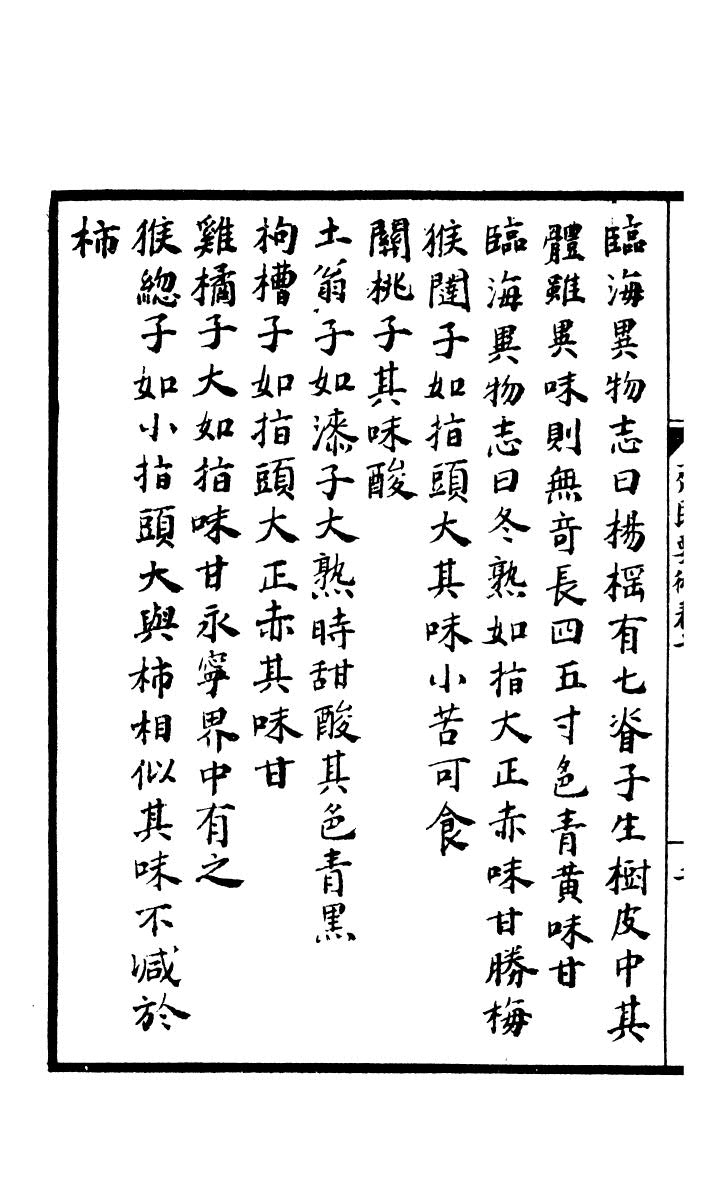 臨海異物志曰楊榣有七脊子生樹皮中其
體雖異味則無竒長四五寸色青黄味甘
臨海異物志曰冬熟如指大正赤味甘勝梅
猴闥子如指頭大其味小苦可食
關桃子其味酸
土翁子如漆子大熟時甜酸其色青黒
枸槽子如指頭大正赤其味甘
雞橘子大如指味甘永寧界中有之
猴總子如小指頭大與柿相似其味不减於
柿